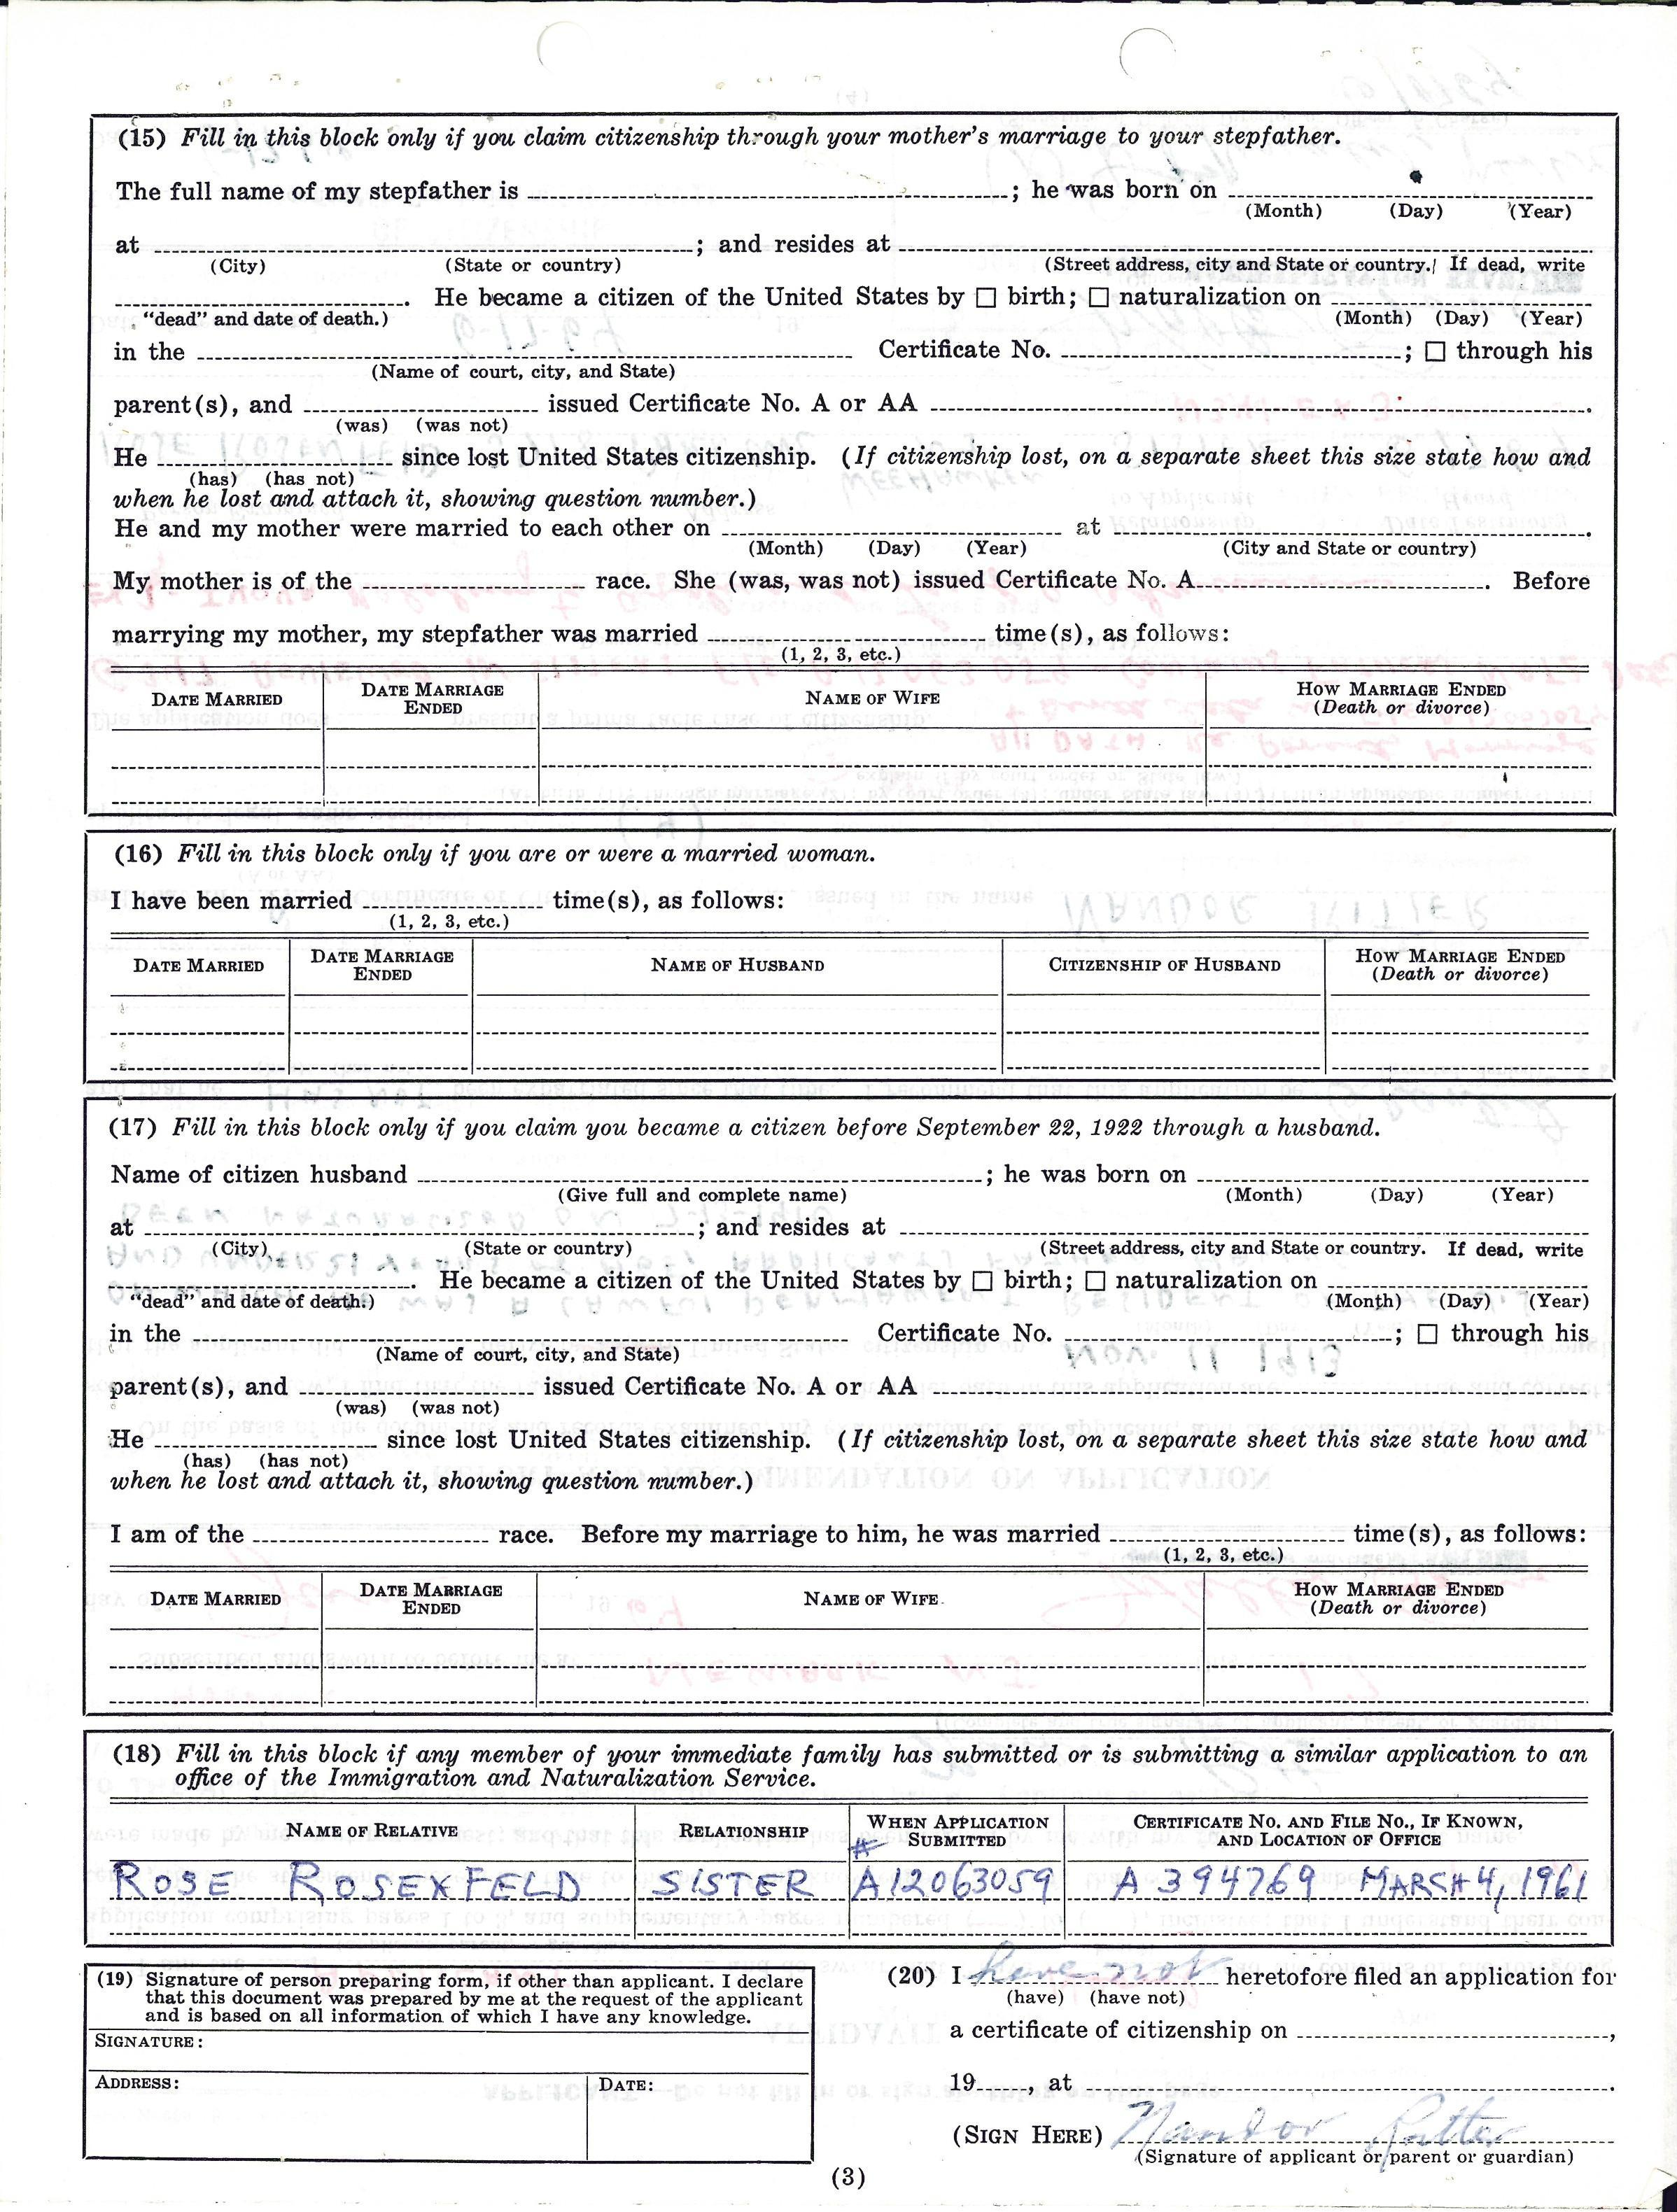 (15) Fill in this block only if you claim citizenship through your mother's marriage to your stepfather.
The full name of my stepfather is ; he was born on
(Month) (Day) (Year)
at ; and resides at
(City) (State or country) (Street address, city and State or country. If dead, write
. He became a citizen of the United States by ☐ birth; ☐ naturalization on
"dead" and date of death.) (Month) (Day) (Year)
in the Certificate No. ; ☐ through his
(Name of court, city, and State)
parent(s), and issued Certificate No. A or AA .
(was) (was not)
He since lost United States citizenship. (If citizenship lost, on a separate sheet this size state how and
(has) (has not)
when he lost and attach it, showing question number.)
He and my mother were married to each other on at .
(Month) (Day) (Year) (City and State or country)
My mother is of the race. She (was, was not) issued Certificate No. A . Before
marrying my mother, my stepfather was married time(s), as follows:
(1, 2, 3, etc.)
DATE MARRIED DATE MARRIAGE ENDED NAME OF WIFE HOW MARRIAGE ENDED (Death or divorce)
(16) Fill in this block only if you are or were a married woman.
I have been married time(s), as follows:
(1, 2, 3, etc.)
DATE MARRIED DATE MARRIAGE ENDED NAME OF HUSBAND CITIZENSHIP OF HUSBAND HOW MARRIAGE ENDED (Death or divorce)
(17) Fill in this block only if you claim you became a citizen before September 22, 1922 through a husband.
Name of citizen husband ; he was born on
(Give full and complete name) (Month) (Day) (Year)
at ; and resides at
(City) (State or country) (Street address, city and State or country. If dead, write
. He became a citizen of the United States by ☐ birth; ☐ naturalization on
"dead" and date of death.) (Month) (Day) (Year)
in the Certificate No. ; ☐ through his
(Name of court, city, and State)
parent(s), and issued Certificate No. A or AA
(was) (was not)
He since lost United States citizenship. (If citizenship lost, on a separate sheet this size state how and
(has) (has not)
when he lost and attach it, showing question number.)
I am of the race. Before my marriage to him, he was married time(s), as follows:
(1, 2, 3, etc.)
DATE MARRIED DATE MARRIAGE ENDED NAME OF WIFE HOW MARRIAGE ENDED (Death or divorce)
(18) Fill in this block if any member of your immediate family has submitted or is submitting a similar application to an
office of the Immigration and Naturalization Service.
NAME OF RELATIVE RELATIONSHIP WHEN APPLICATION SUBMITTED CERTIFICATE NO. AND FILE NO., IF KNOWN, AND LOCATION OF OFFICE
#
ROSE ROSENFELD SISTER A12063059 A 394769 MARCH 4, 1961
(19) Signature of person preparing form, if other than applicant. I declare
that this document was prepared by me at the request of the applicant
and is based on all information of which I have any knowledge.
SIGNATURE:
ADDRESS: DATE:
(20) I have not heretofore filed an application for
(have) (have not)
a certificate of citizenship on ,
19 , at .
(SIGN HERE) Nandor Ritter
(Signature of applicant or parent or guardian)
(3)